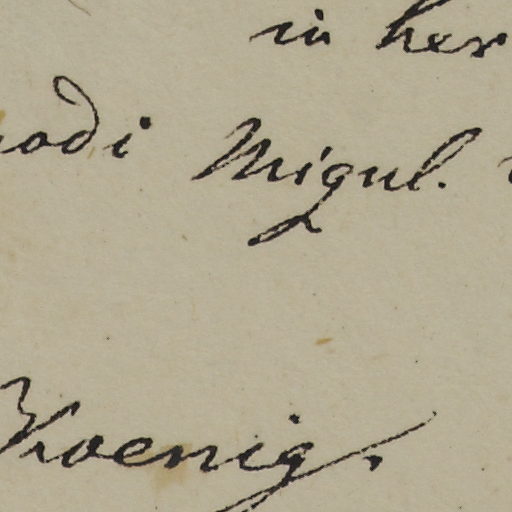 in her
odi Miqul.
Koenig.